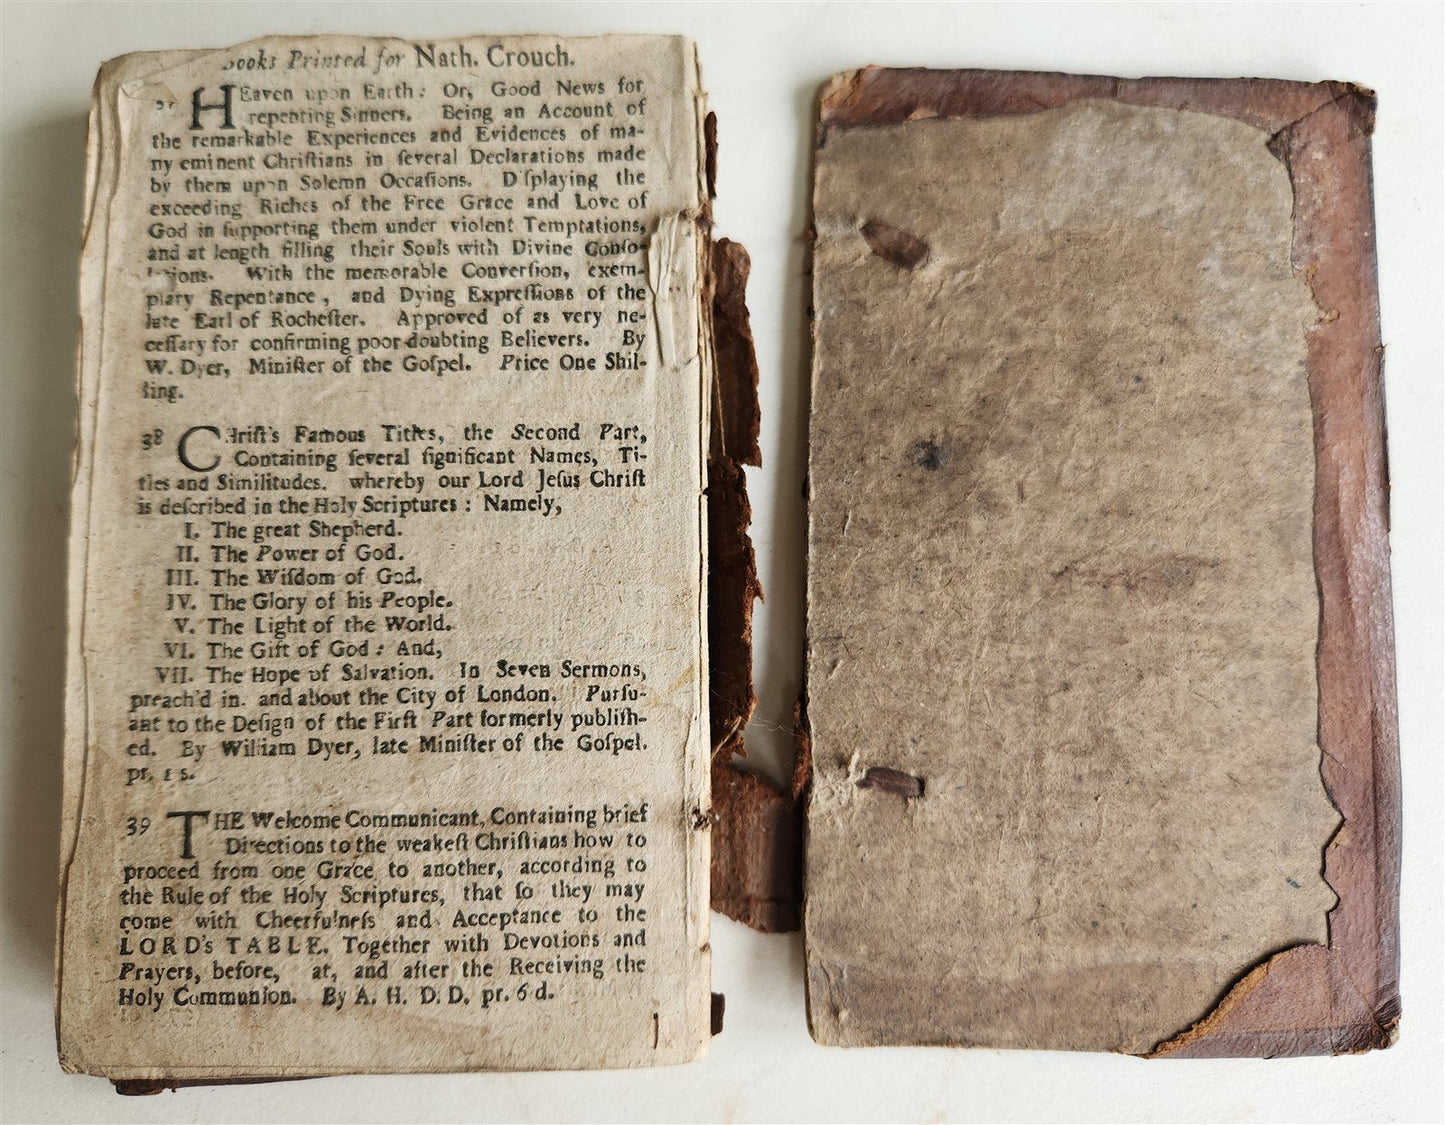 Books Printed for Nath. Crouch.
37 HEaven upon Earth: Or, Good News for
repenting Sinners. Being an Account of
the remarkable Experiences and Evidences of ma-
ny eminent Chriſtians in ſeveral Declarations made
by them upon Solemn Occaſions. Diſplaying the
exceeding Riches of the Free Grace and Love of
God in ſupporting them under violent Temptations,
and at length filling their Souls with Divine Conſo-
lations. With the memorable Converſion, exem-
plary Repentance, and Dying Expreſſions of the
late Earl of Rocheſter. Approved of as very ne-
ceſſary for confirming poor doubting Believers. By
W. Dyer, Miniſter of the Goſpel. Price One Shil-
ling.
38 CHriſt's Famous Titles, the Second Part,
Containing ſeveral ſignificant Names, Ti-
tles and Similitudes. whereby our Lord Jeſus Chriſt
is deſcribed in the Holy Scriptures: Namely,
I. The great Shepherd.
II. The Power of God.
III. The Wiſdom of God.
IV. The Glory of his People.
V. The Light of the World.
VI. The Gift of God: And,
VII. The Hope of Salvation. In Seven Sermons,
preach'd in. and about the City of London. Purſu-
ant to the Deſign of the Firſt Part formerly publiſh-
ed. By William Dyer, late Miniſter of the Goſpel.
pr. 1 s.
39 THE Welcome Communicant, Containing brief
Directions to the weakeſt Chriſtians how to
proceed from one Grace to another, according to
the Rule of the Holy Scriptures, that ſo they may
come with Cheerfulneſs and Acceptance to the
LORD's TABLE. Together with Devotions and
Prayers, before, at, and after the Receiving the
Holy Communion. By A. H. D. D. pr. 6 d.